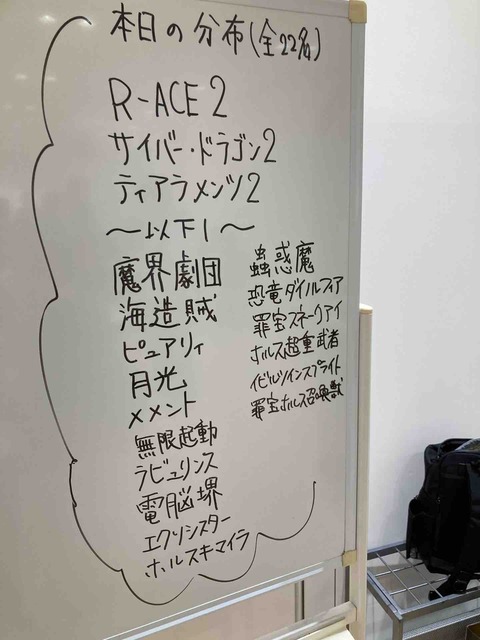 本日の分布(全22名)
R-ACE 2
サイバー・ドラゴン2
ティアラメンツ2
〜以下1〜
魔界劇団
海造賊
ピュアリィ
月光
メメント
無限起動
ラビュリンス
電脳堺
エクソシスター
ホルスキマイラ
蟲惑魔
恐竜ダイノルフィア
罪宝スネークアイ
ホルス超重武者
イビルツインスプライト
罪宝ホルス召喚獣